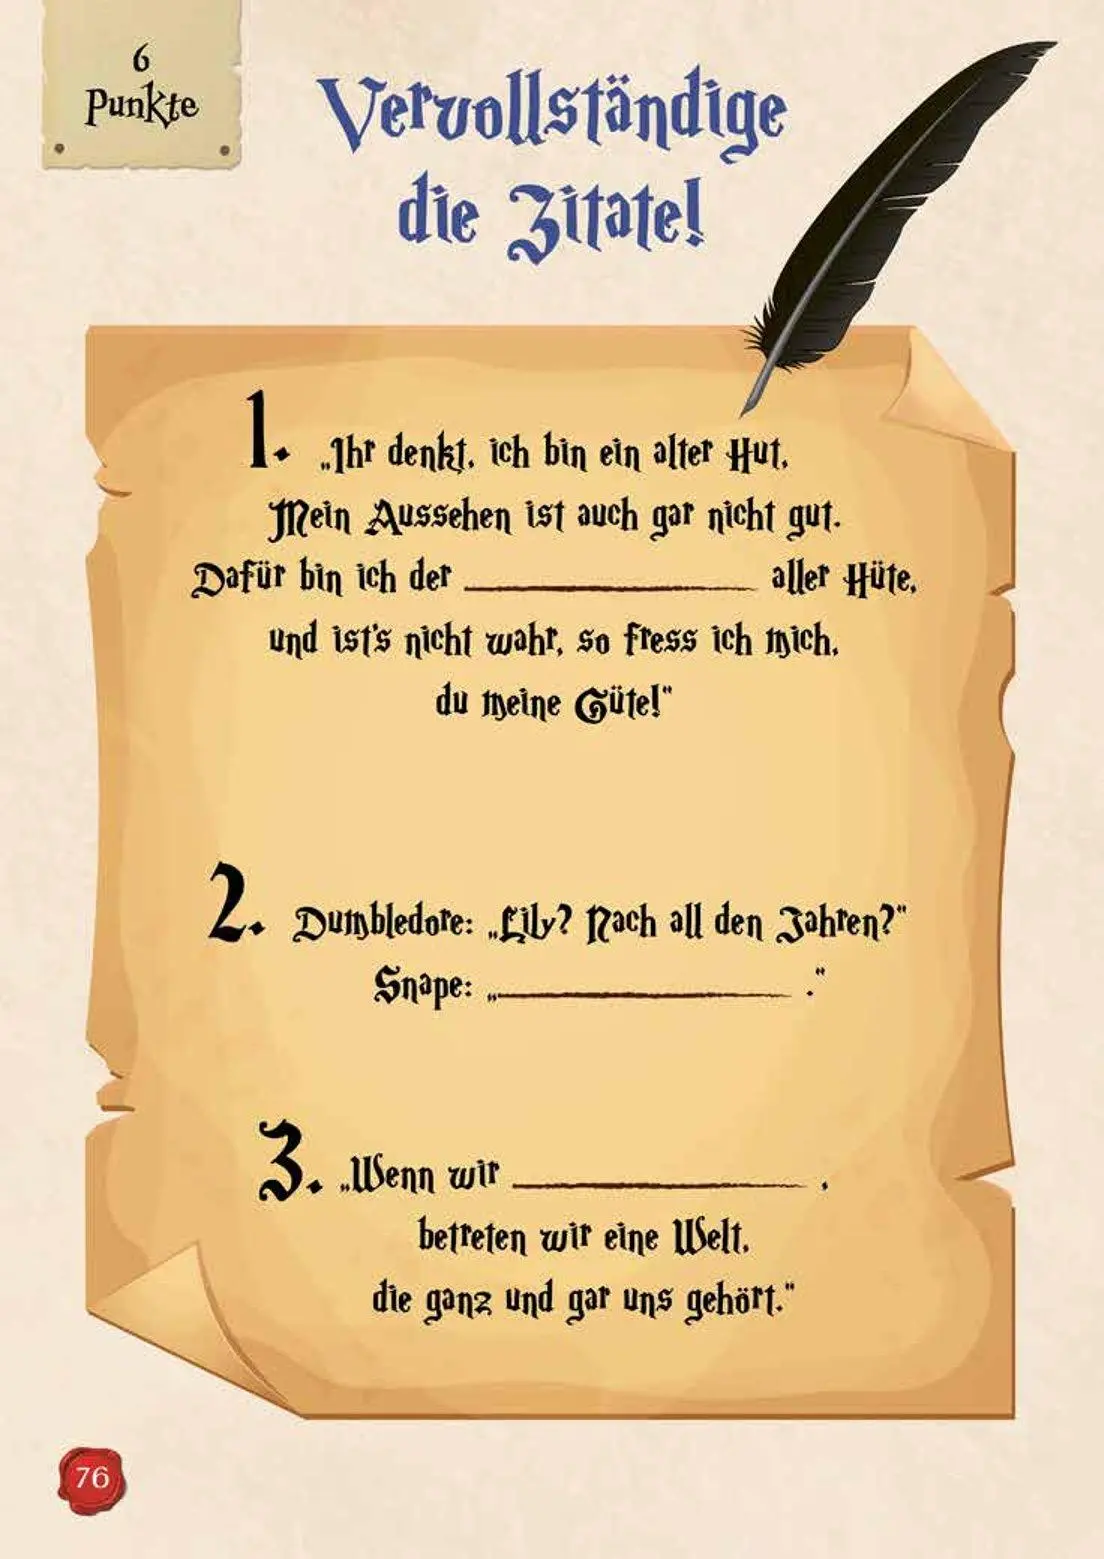 6
Punkte
Vervollständige
die Zitate!
1. „Ihr denkt, ich bin ein alter Hut,
Mein Aussehen ist auch gar nicht gut.
Dafür bin ich der ____________ aller Hüte,
und ist's nicht wahr, so fress ich mich,
du meine Güte!“
2. Dumbledore: „Lily? Nach all den Jahren?“
Snape: „____________ .“
3. „Wenn wir ____________ ,
betreten wir eine Welt,
die ganz und gar uns gehört.“
76